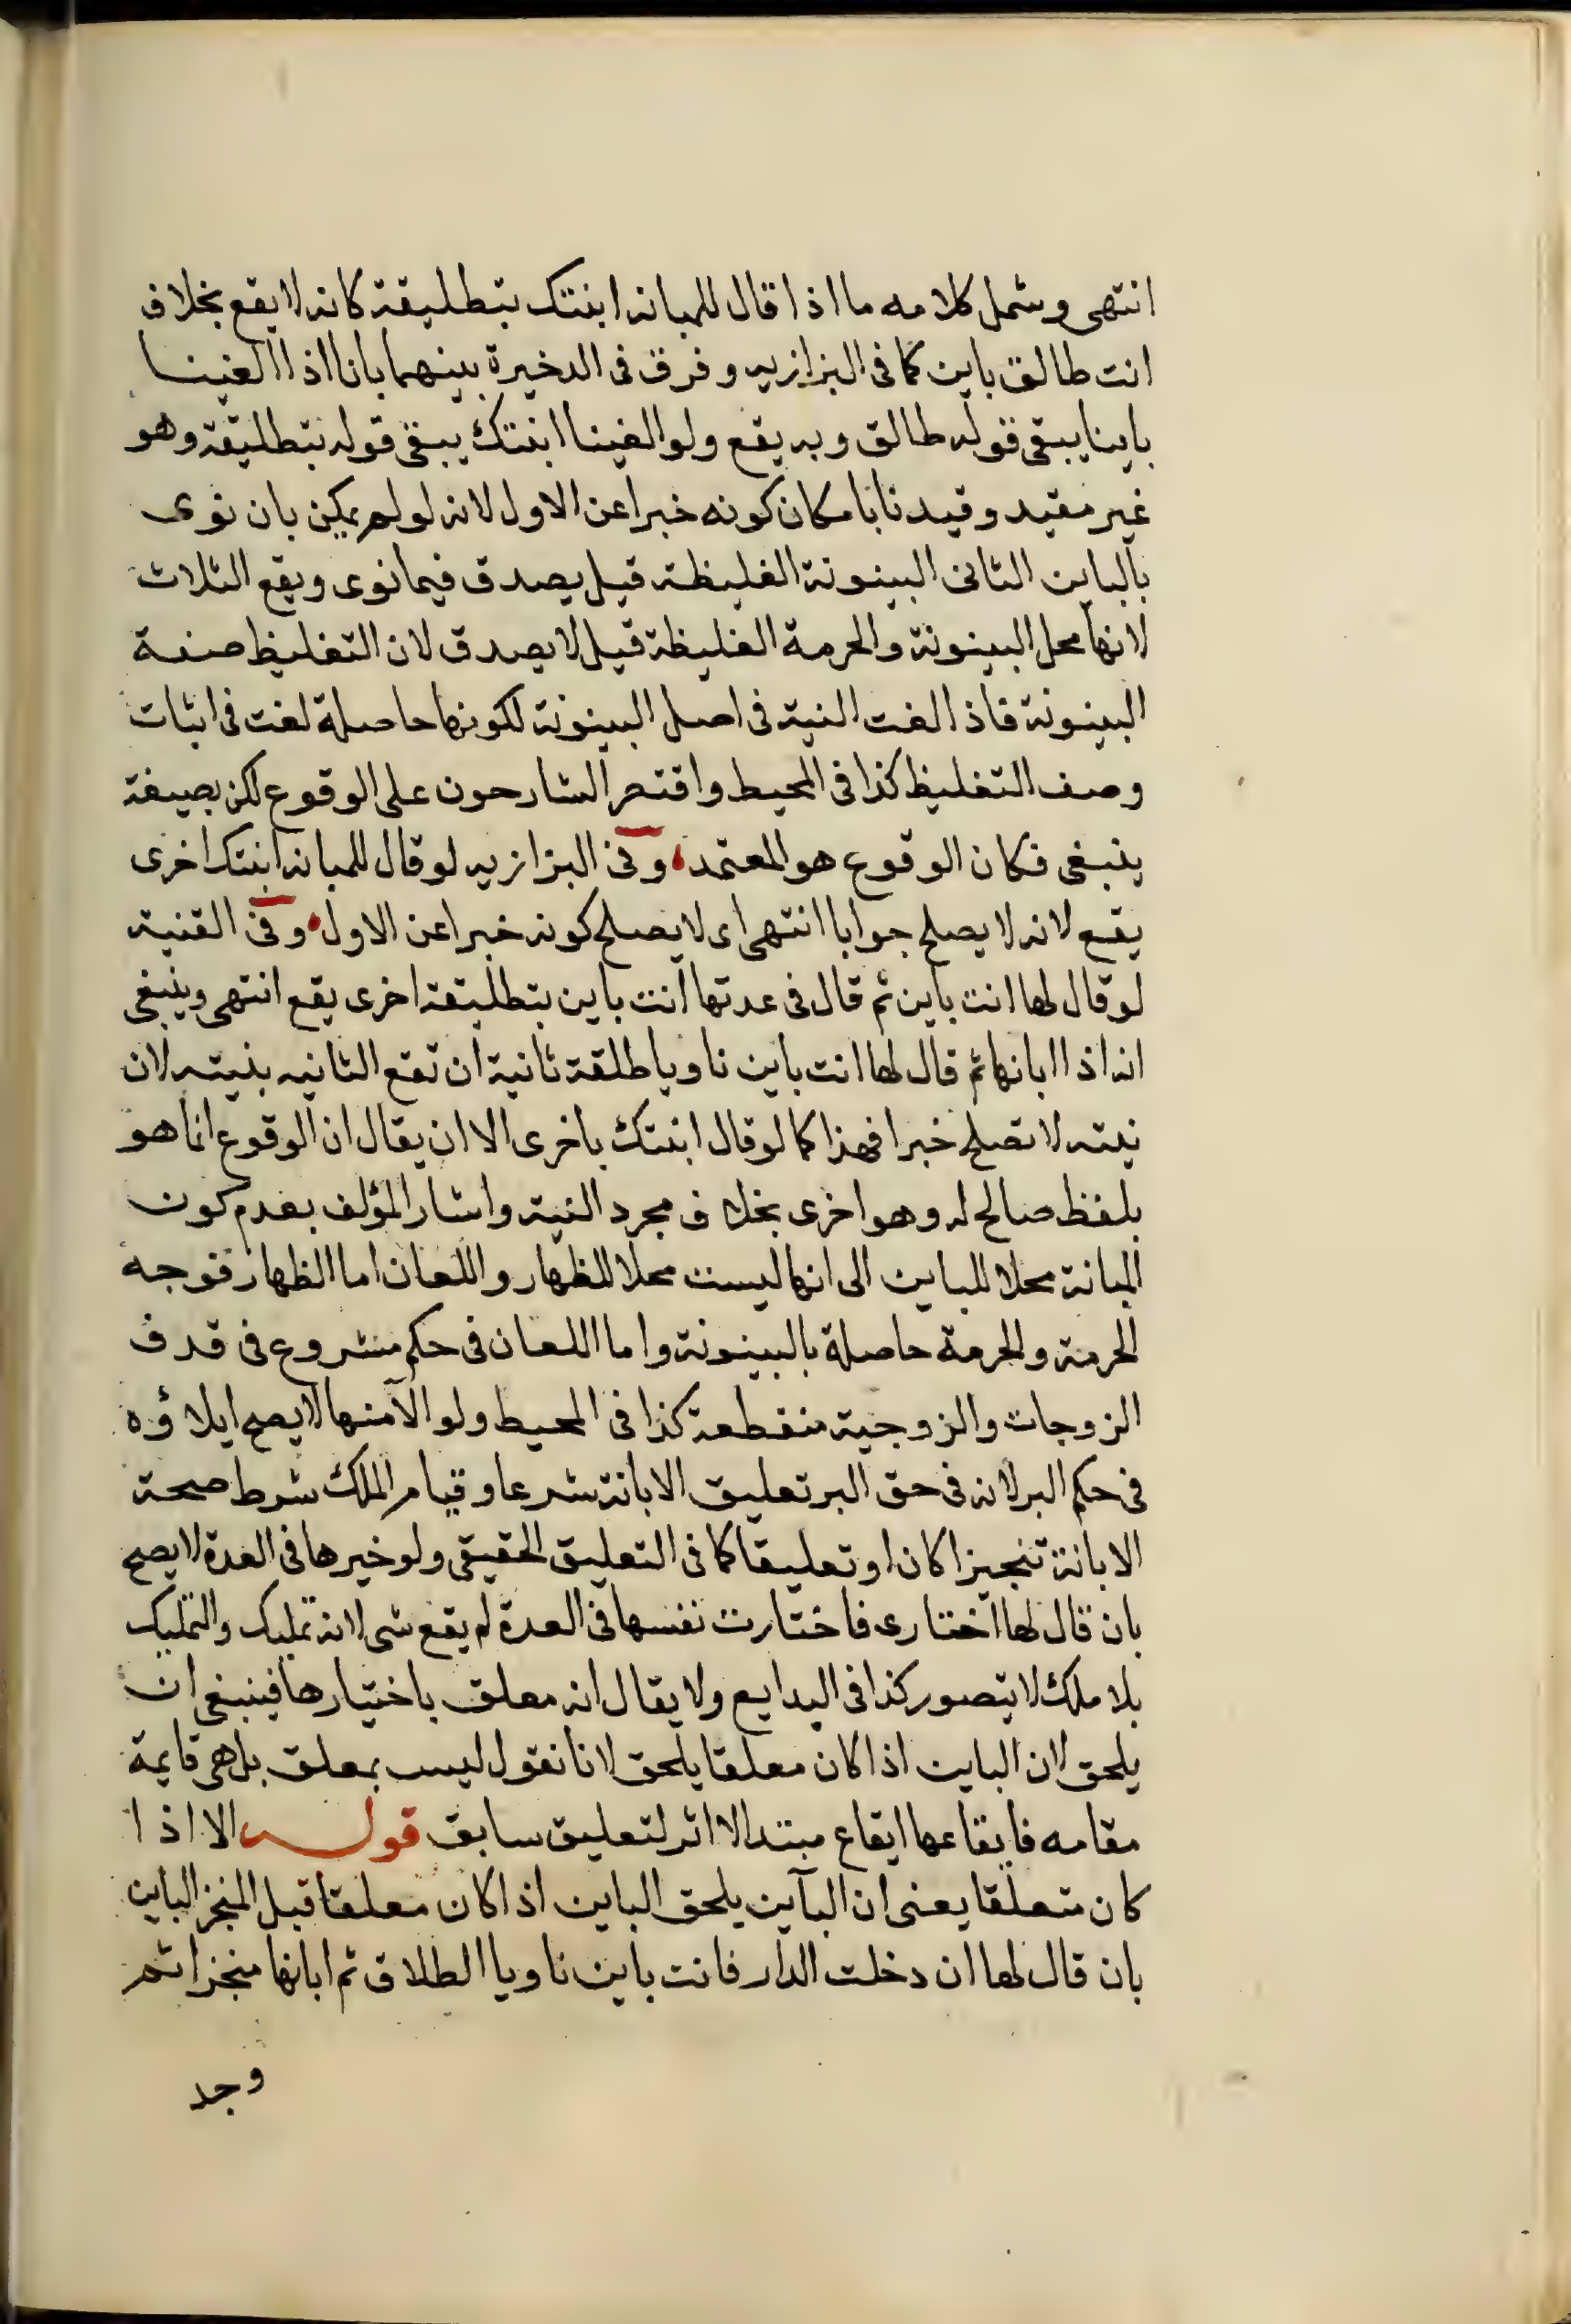 انتهى وشمل كلامه ما اذا قال للمبانه ابنتك بتطليقة كانه لا يقع بخلاف
انت طالق باين كما فى البزازيه وفرق فى الدخيرة بينهما بانا اذا الغينا
باينا يبقى قوله طالق وبه يقع ولو الغينا ابنتك يبقى قوله بتطليقة وهو
غير مقيد وقيدنا بامكان كونه خبرا عن الاول لانه لو لم يمكن بان نوى
بالباين الثانى البينونة الغليظة قيل يصدق فيما نوى ويقع الثلاث
لانها محل البينونة والحرمة الغليظة قيل لا يصدق لان التغليظ صفة
البينونة فاذا لغت النية فى اصل البينونة لكونها حاصلة لغت فى اثبات
وصف التغليظ كذا فى المحيط واقتصر الشارحون على الوقوع لكن بصيغة
ينبغى فكان الوقوع هو المعتمد وفى البزازيه لو قال للمبانه ابنتك اخرى
يقع لانه لا يصلح جوابا انتهى اى لا يصلح كونه خبرا عن الاول وفى القنية
لو قال لها انت باين ثم قال فى عدتها انت باين بتطليقة اخرى يقع انتهى وينبغى
انه اذا ابانها ثم قال لها انت باين ناويا طلقة ثانية ان تقع الثانيه بنيته لان
نيته لا تصلح خبرا فهذا كما لو قال ابنتك باخرى الا ان يقال ان الوقوع انما هو
بلفظ صالح له وهو اخرى بخلاف مجرد النية واشار المؤلف بعدم كون
المبانة محلا للباين الى انها ليست محلا للظهار واللعان اما الظهار فوجه
الحرمة والحرمة حاصلة بالبينونة واما اللعان فى حكم مشروع فى قدف
الزوجات والزوجية منقطعة كذا فى المحيط ولو الآمنها لا يصح ايلاؤه
فى حكم البر لانه فى حق البر تعليق الابانة شرعا وقيام الملك شرط صحة
الابانة تنجيزا كان او تعليقا كما فى التعليق الحقيقى ولو خيرها فى العدة لا يصح
بان قال لها اختارى فاختارت نفسها فى العدة لم يقع شى لانه تمليك والتمليك
بلا ملك لا يتصور كذا فى البدايع ولا يقال انه معلق باختيارها فينبغى ان
يلحق لان الباين اذا كان معلقا يلحق لانا نقول ليس بمعلق بل هى قايمة
مقامه فايقاعها ايقاع مبتدا لا اثر لتعليق سابق قوله الا اذا
كان متعلقا يعنى ان البآين يلحق الباين اذا كان معلقا قبل المنجز الباين
بان قال لها ان دخلت الدار فانت باين ناويا الطلاق ثم ابانها منجزا ثم
وجد